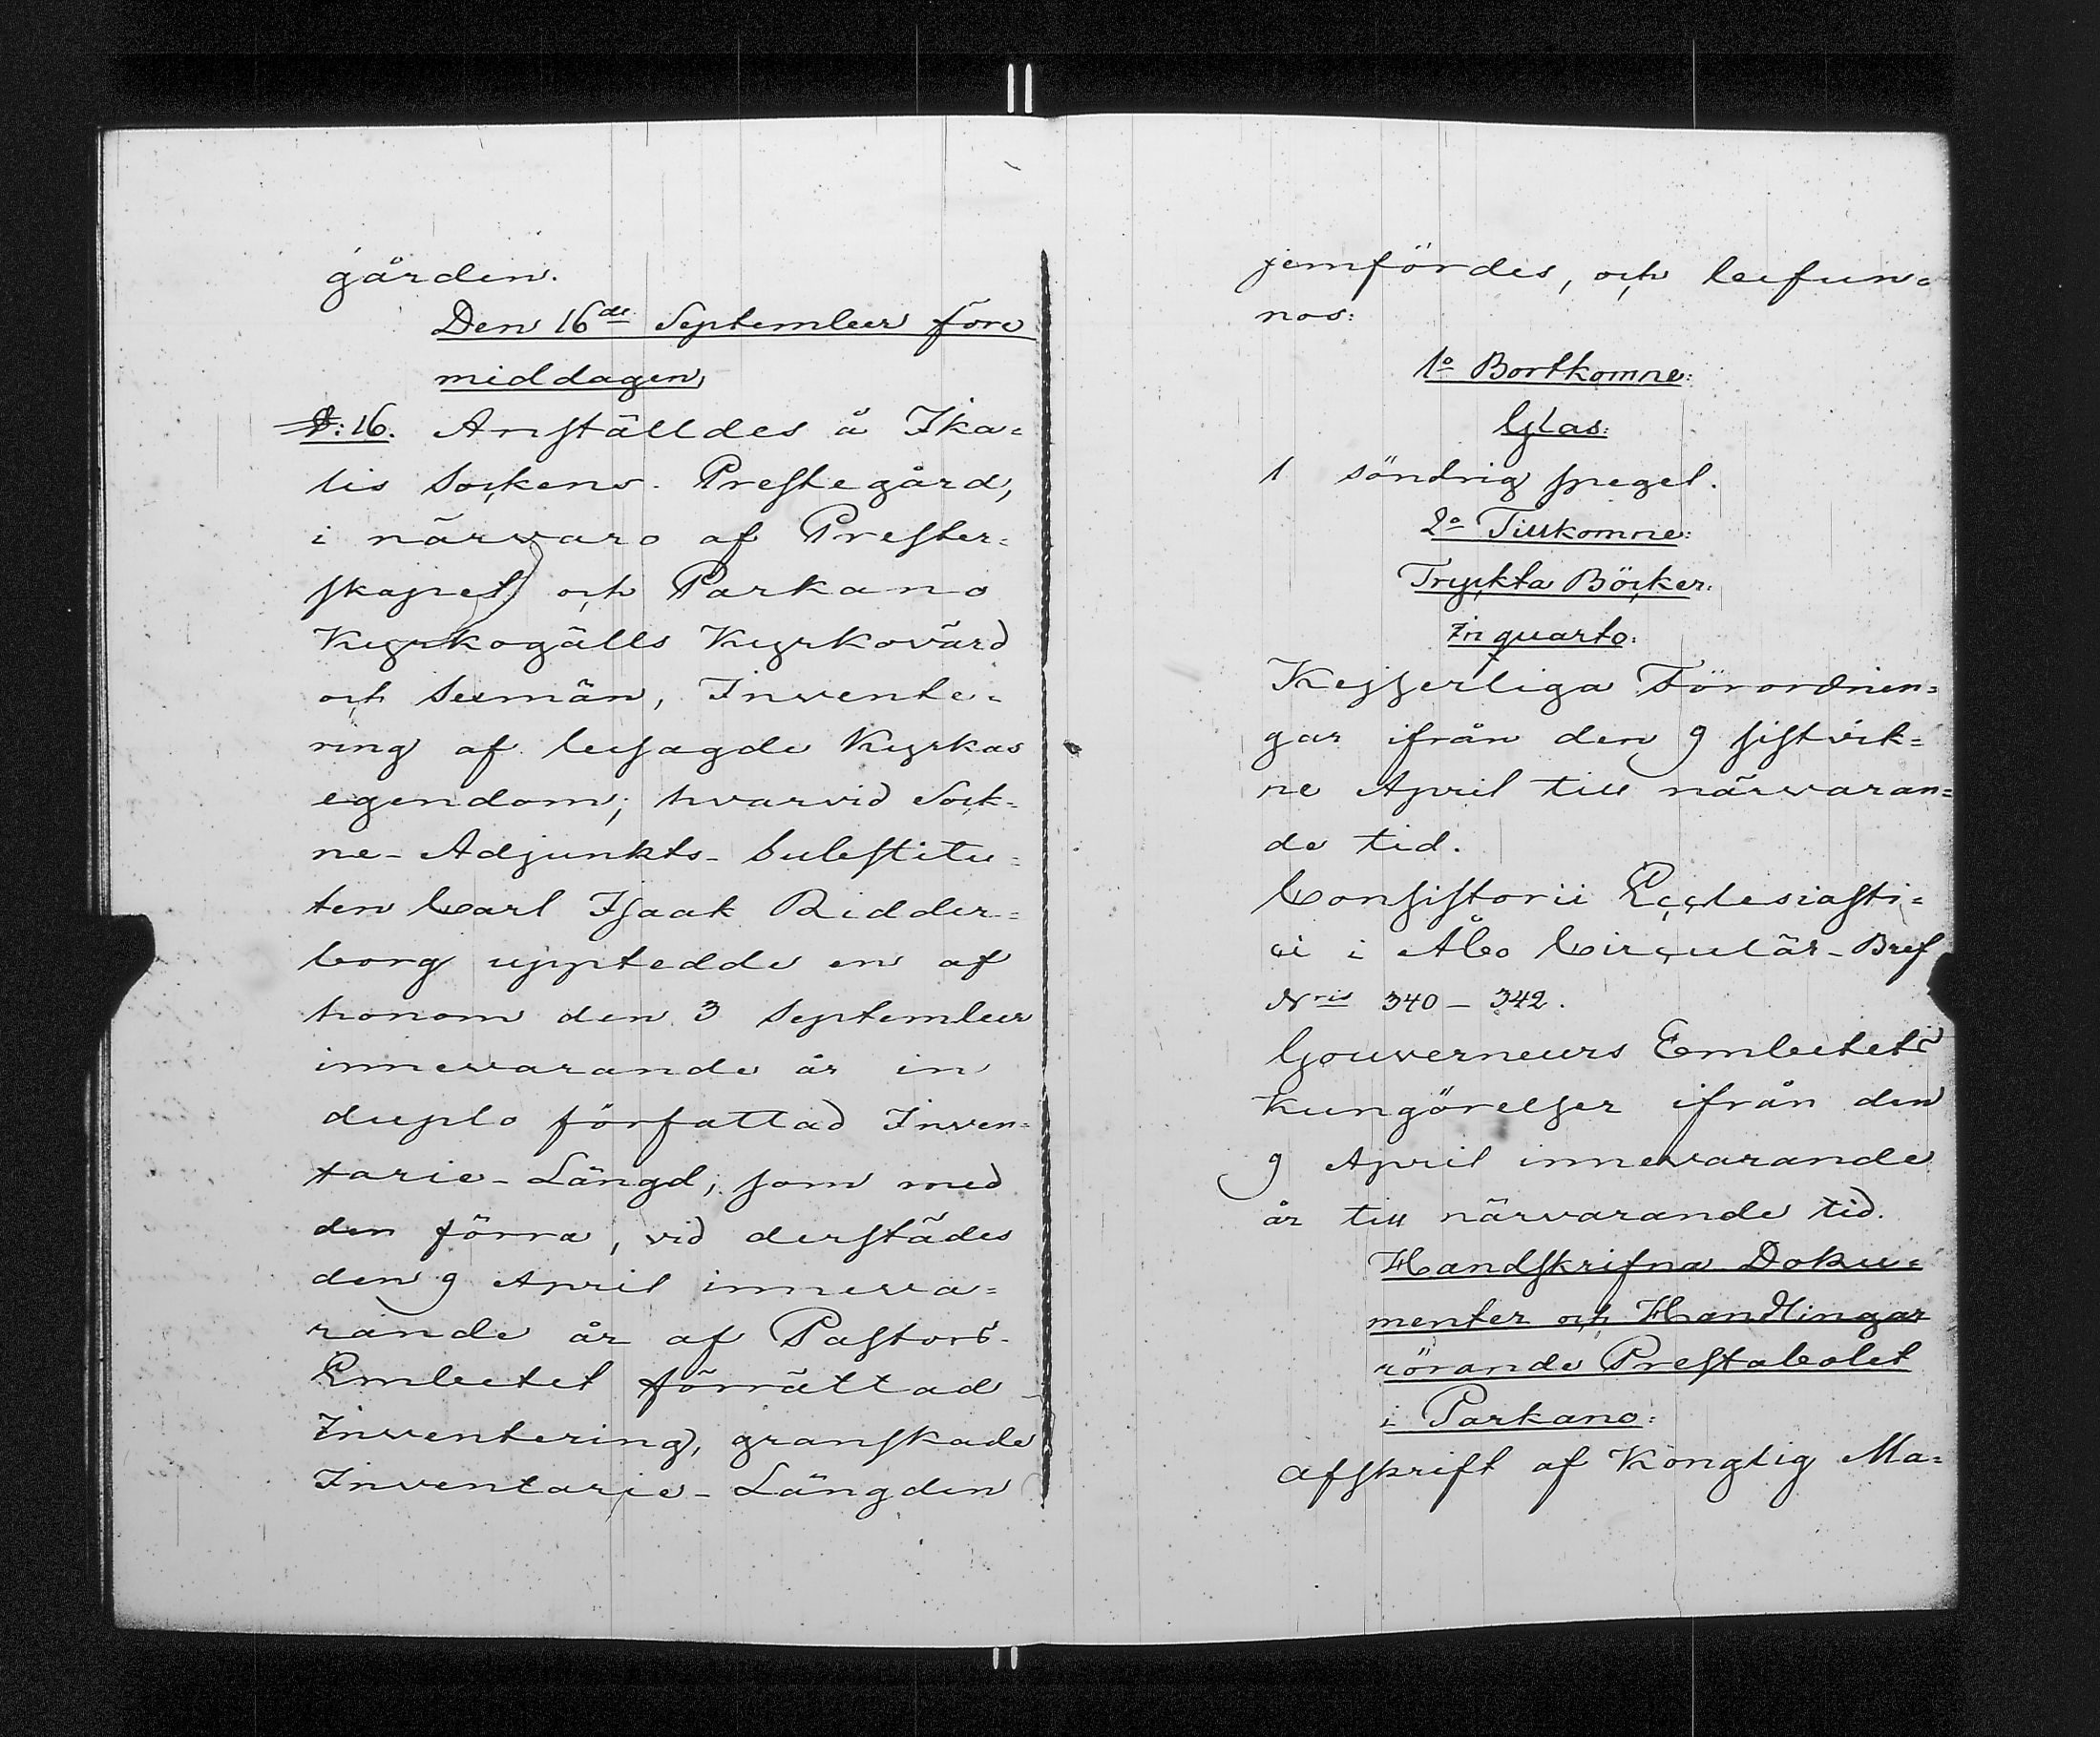 gården.
Den 16de September före
middagen,
§:16. Anställdes å Ika=
lis Sockens Prestegård,
i närvaro af Prester=
skapet och Parkano
Kyrkogälls Kyrkovärd
och Sexmän, Invente=
ring af besagde Kyrkas
egendom; hvarvid Sock=
ne-Adjunkts-Substitu=
ten Carl Isaak Ridder=
borg upptedde en af
honom den 3 September
innevarande år in
duplo författad Inven=
tarie-Längd, som med
den förra, vid derstädes
den 9 April inneva=
rande år af Pastors-
Embetet förrättad
Inventering, granskade
Inventarie-Längden
jemfördes, och befun=
nos:
1o Bortkomne:
Glas:
1 söndrig spegel.
2o Tillkomne:
Tryckta Böcker:
In quarto:
Kejserliga Förordnin=
gar ifrån den 9 sistvik=
ne April till närvaran=
de tid.
Consistorii Ecclesiasti=
ci i Åbo Circulär-Bref
Nris 340-342.
Gouverneurs Embetets
kungörelser ifrån den
9 April innevarande
år till närvarande tid.
Handskrifna Doku=
menter och Handlingar
rörande Prestabolet
i Parkano:
Afskrift af Konglig Ma=